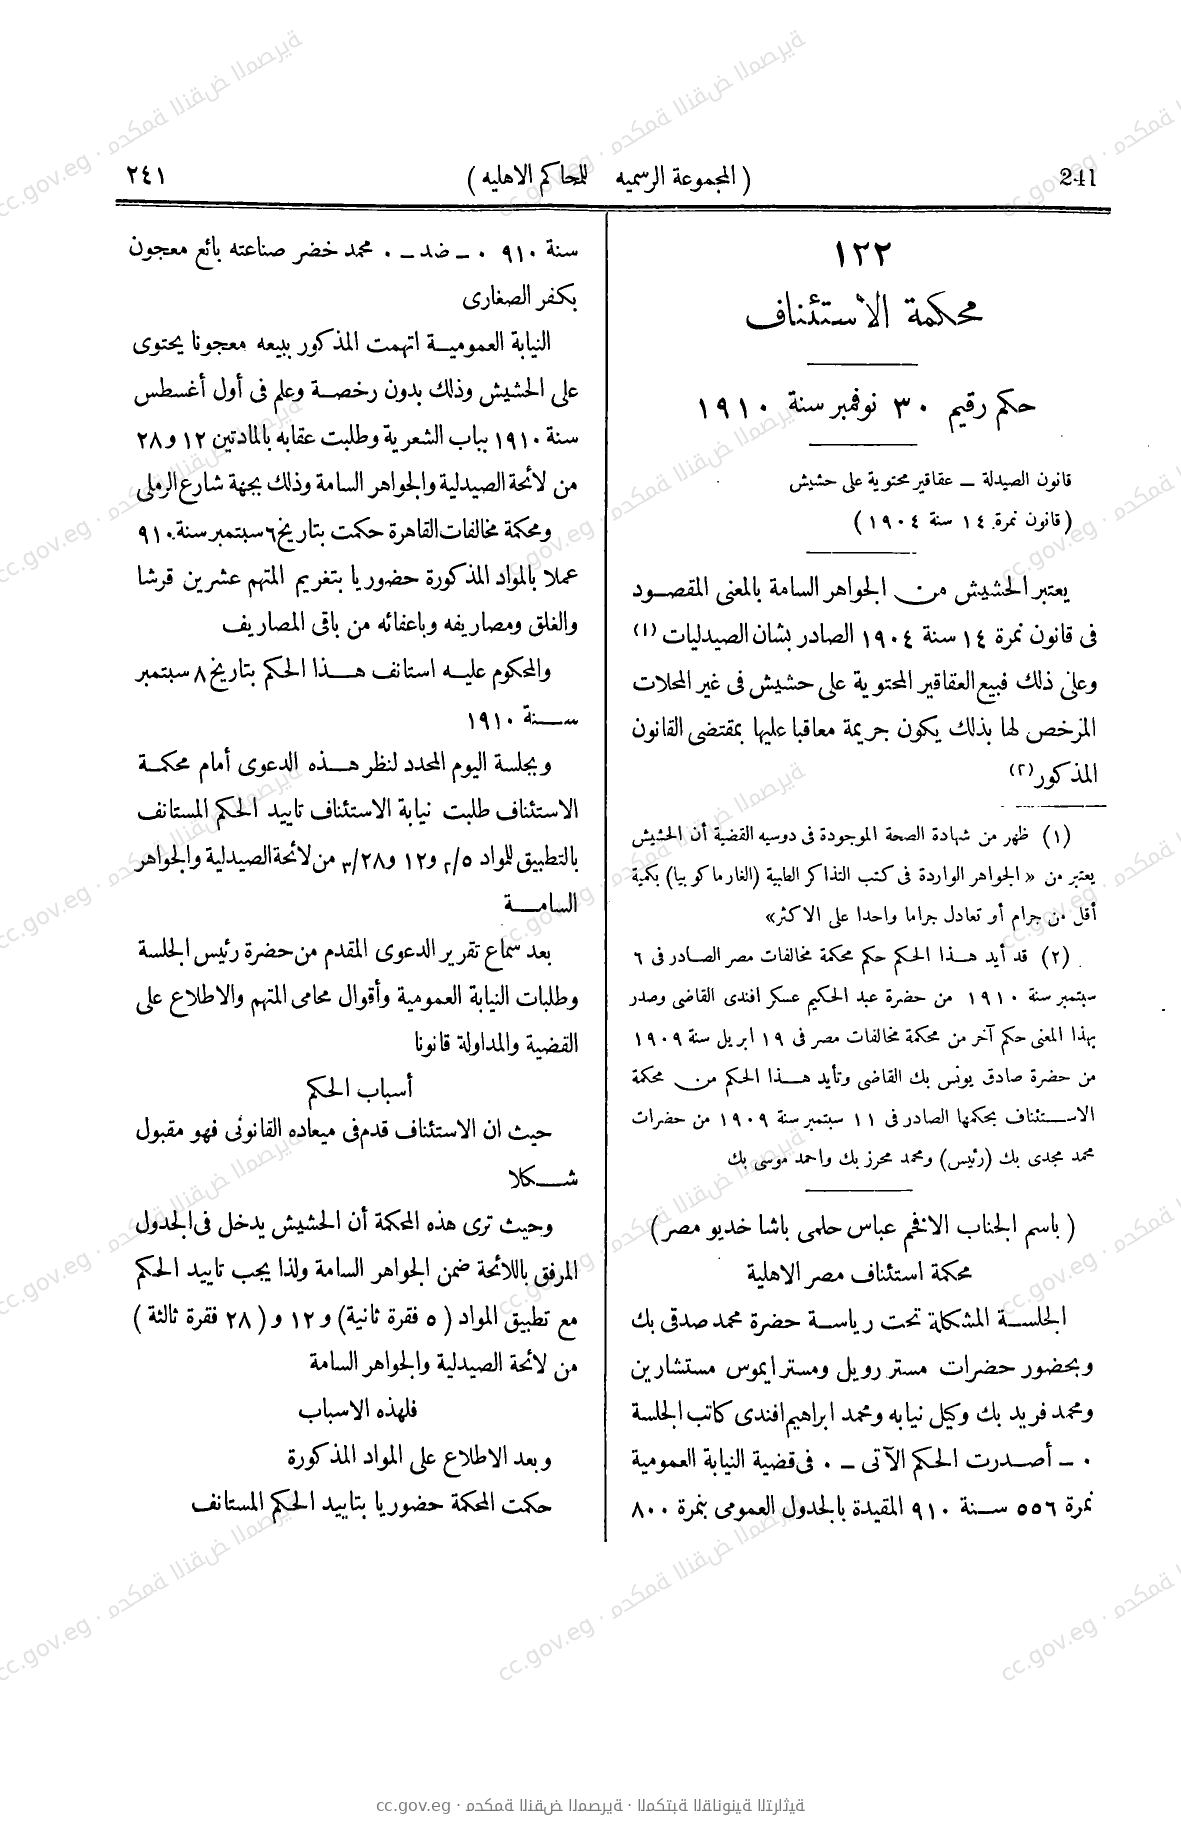 241 ( المجموعة الرسميه للمحاكم الاهليه ) ٢٤١
١٢٢
محكمة الاستئناف
حكم رقيم ٣٠ نوفمبر سنة ١٩١٠
قانون الصيدلة – عقاقير محتوية على حشيش
( قانون نمرة ١٤ سنة ١٩٠٤ )
يعتبر الحشيش من الجواهر السامة بالمعنى المقصود
فى قانون نمرة ١٤ سنة ١٩٠٤ الصادر بشان الصيدليات (١)
وعلى ذلك فبيع العقاقير المحتوية على حشيش فى غير المحلات
المرخص لها بذلك يكون جريمة معاقبا عليها بمقتضى القانون
المذكور (٢)
(١) ظهر من شهادة الصحة الموجودة فى دوسيه القضية أن الحشيش
يعتبر من « الجواهر الواردة فى كتب التذاكر الطبية (الغارماكوبيا) بكمية
أقل من جرام أو تعادل جراما واحدا على الاكثر»
(٢) قد أيد هذا الحكم حكم محكمة مخالفات مصر الصادر فى ٦
سبتمبر سنة ١٩١٠ من حضرة عبد الحكيم عسكر افندى القاضى وصدر
بهذا المعنى حكم آخر من محكمة مخالفات مصر فى ١٩ ابريل سنة ١٩٠٩
من حضرة صادق يونس بك القاضى وتأيد هذا الحكم من محكمة
الاستئناف بحكمها الصادر فى ١١ سبتمبر سنة ١٩٠٩ من حضرات
محمد مجدى بك (رئيس) ومحمد محرز بك واحمد موسى بك
( باسم الجناب الافخم عباس حلمى باشا خديو مصر )
محكمة استئناف مصر الاهلية
الجلسة المشكلة تحت رياسة حضرة محمد صدقى بك
وبحضور حضرات مستر رويل ومستر ايموس مستشارين
ومحمد فريد بك وكيل نيابه ومحمد ابراهيم افندى كاتب الجلسة
٠ – أصدرت الحكم الآتى – ٠ فى قضية النيابة العمومية
نمرة ٥٥٦ سنة ٩١٠ المقيدة بالجدول العمومى بنمرة ٨٠٠
سنة ٩١٠ ٠ – ضد – ٠ محمد خضر صناعته بائع معجون
بكفر الصغارى
النيابة العمومية اتهمت المذكور ببيعه معجونا يحتوى
على الحشيش وذلك بدون رخصة وعلم فى أول أغسطس
سنة ١٩١٠ بباب الشعرية وطلبت عقابه بالمادتين ١٢ و٢٨
من لائحة الصيدلية والجواهر السامة وذلك بجهة شارع الرملى
ومحكمة مخالفات القاهرة حكمت بتاريخ ٦ سبتمبر سنة ٩١٠
عملا بالمواد المذكورة حضوريا بتغريم المتهم عشرين قرشا
والغلق ومصاريفه وباعفائه من باقى المصاريف
والمحكوم عليه استانف هذا الحكم بتاريخ ٨ سبتمبر
سنة ١٩١٠
وبجلسة اليوم المحدد لنظر هذه الدعوى أمام محكمة
الاستئناف طلبت نيابة الاستئناف تاييد الحكم المستانف
بالتطبيق للمواد ٢/٥ و١٢ و٣/٢٨ من لائحة الصيدلية والجواهر
السامة
بعد سماع تقرير الدعوى المقدم من حضرة رئيس الجلسة
وطلبات النيابة العمومية وأقوال محامى المتهم والاطلاع على
القضية والمداولة قانونا
أسباب الحكم
حيث ان الاستئناف قدم فى ميعاده القانونى فهو مقبول
شكلا
وحيث ترى هذه المحكمة أن الحشيش يدخل فى الجدول
المرفق باللائحة ضمن الجواهر السامة ولذا يجب تاييد الحكم
مع تطبيق المواد ( ٥ فقرة ثانية) و ١٢ و ( ٢٨ فقرة ثالثة )
من لائحة الصيدلية والجواهر السامة
فلهذه الاسباب
وبعد الاطلاع على المواد المذكورة
حكمت المحكمة حضوريا بتاييد الحكم المستانف
cc.gov.eg · محكمة النقض المصرية · المكتبة القانونية التراثية